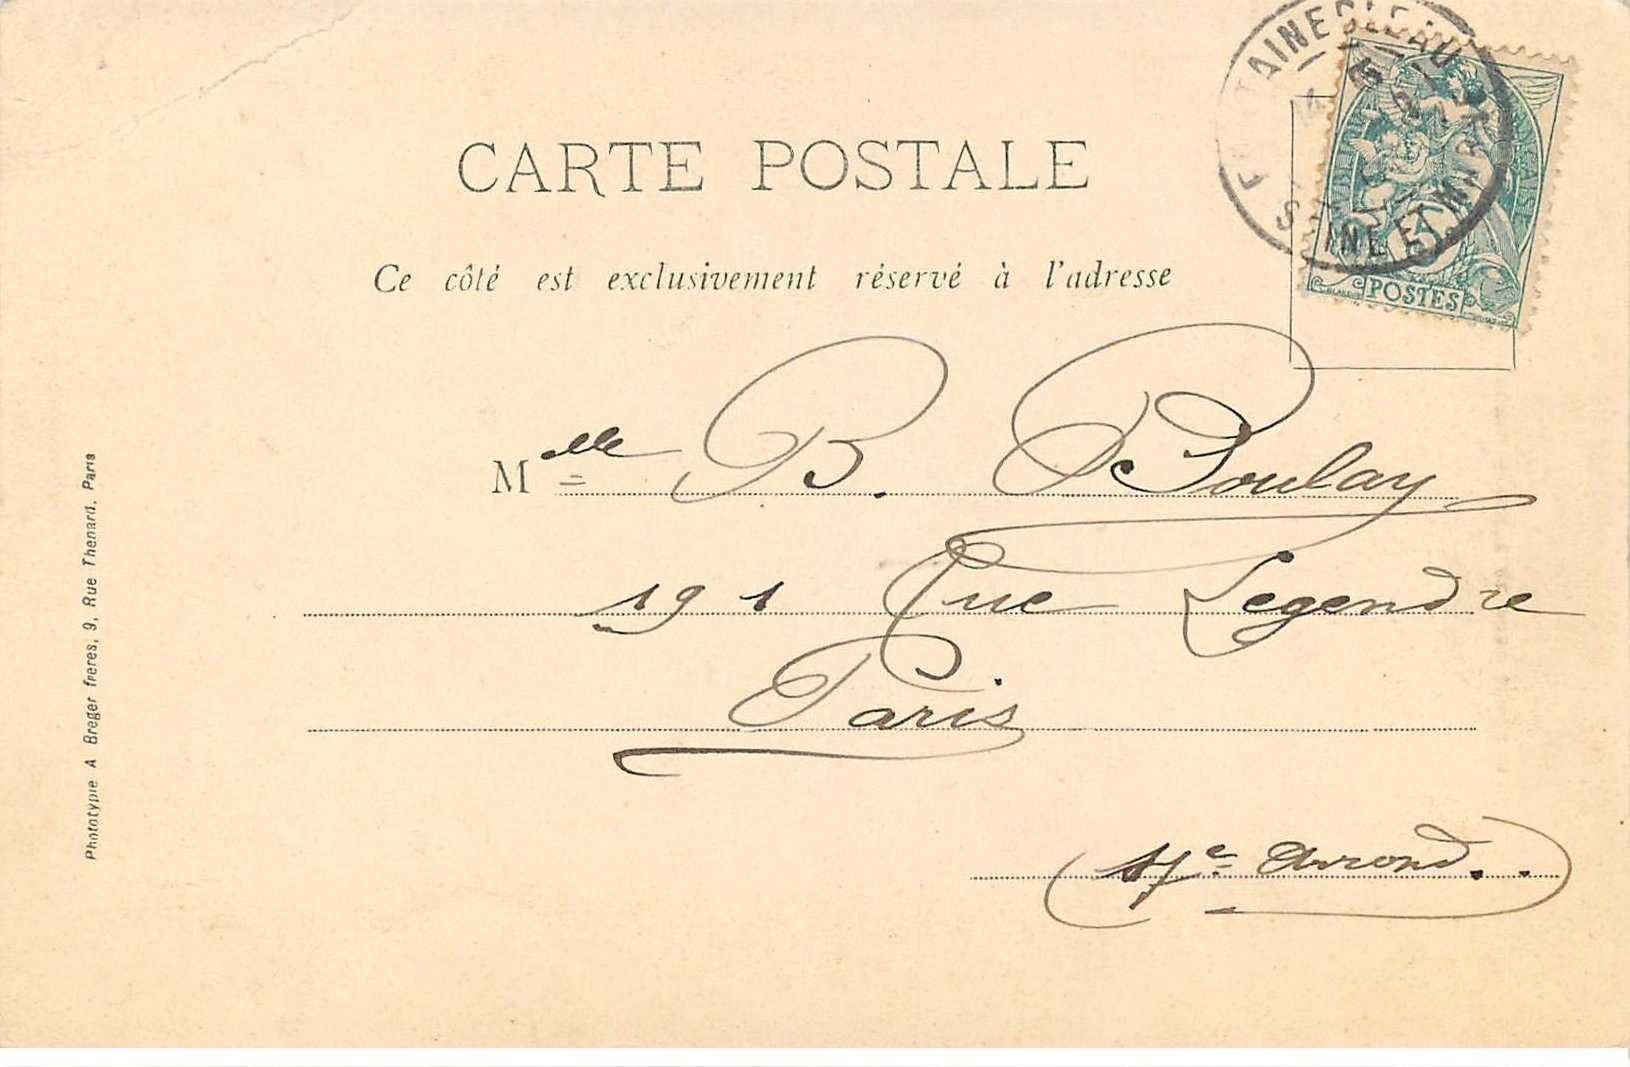 CARTE POSTALE
Ce côté est exclusivement réservé à l'adresse
FONTAINEBLEAU
SEINE ET MARNE
POSTES
Mlle B. Boulay
191 Rue Legendre
Paris
17e Arrond..
Phototypie A Breger frères, 9, Rue Thenard, Paris